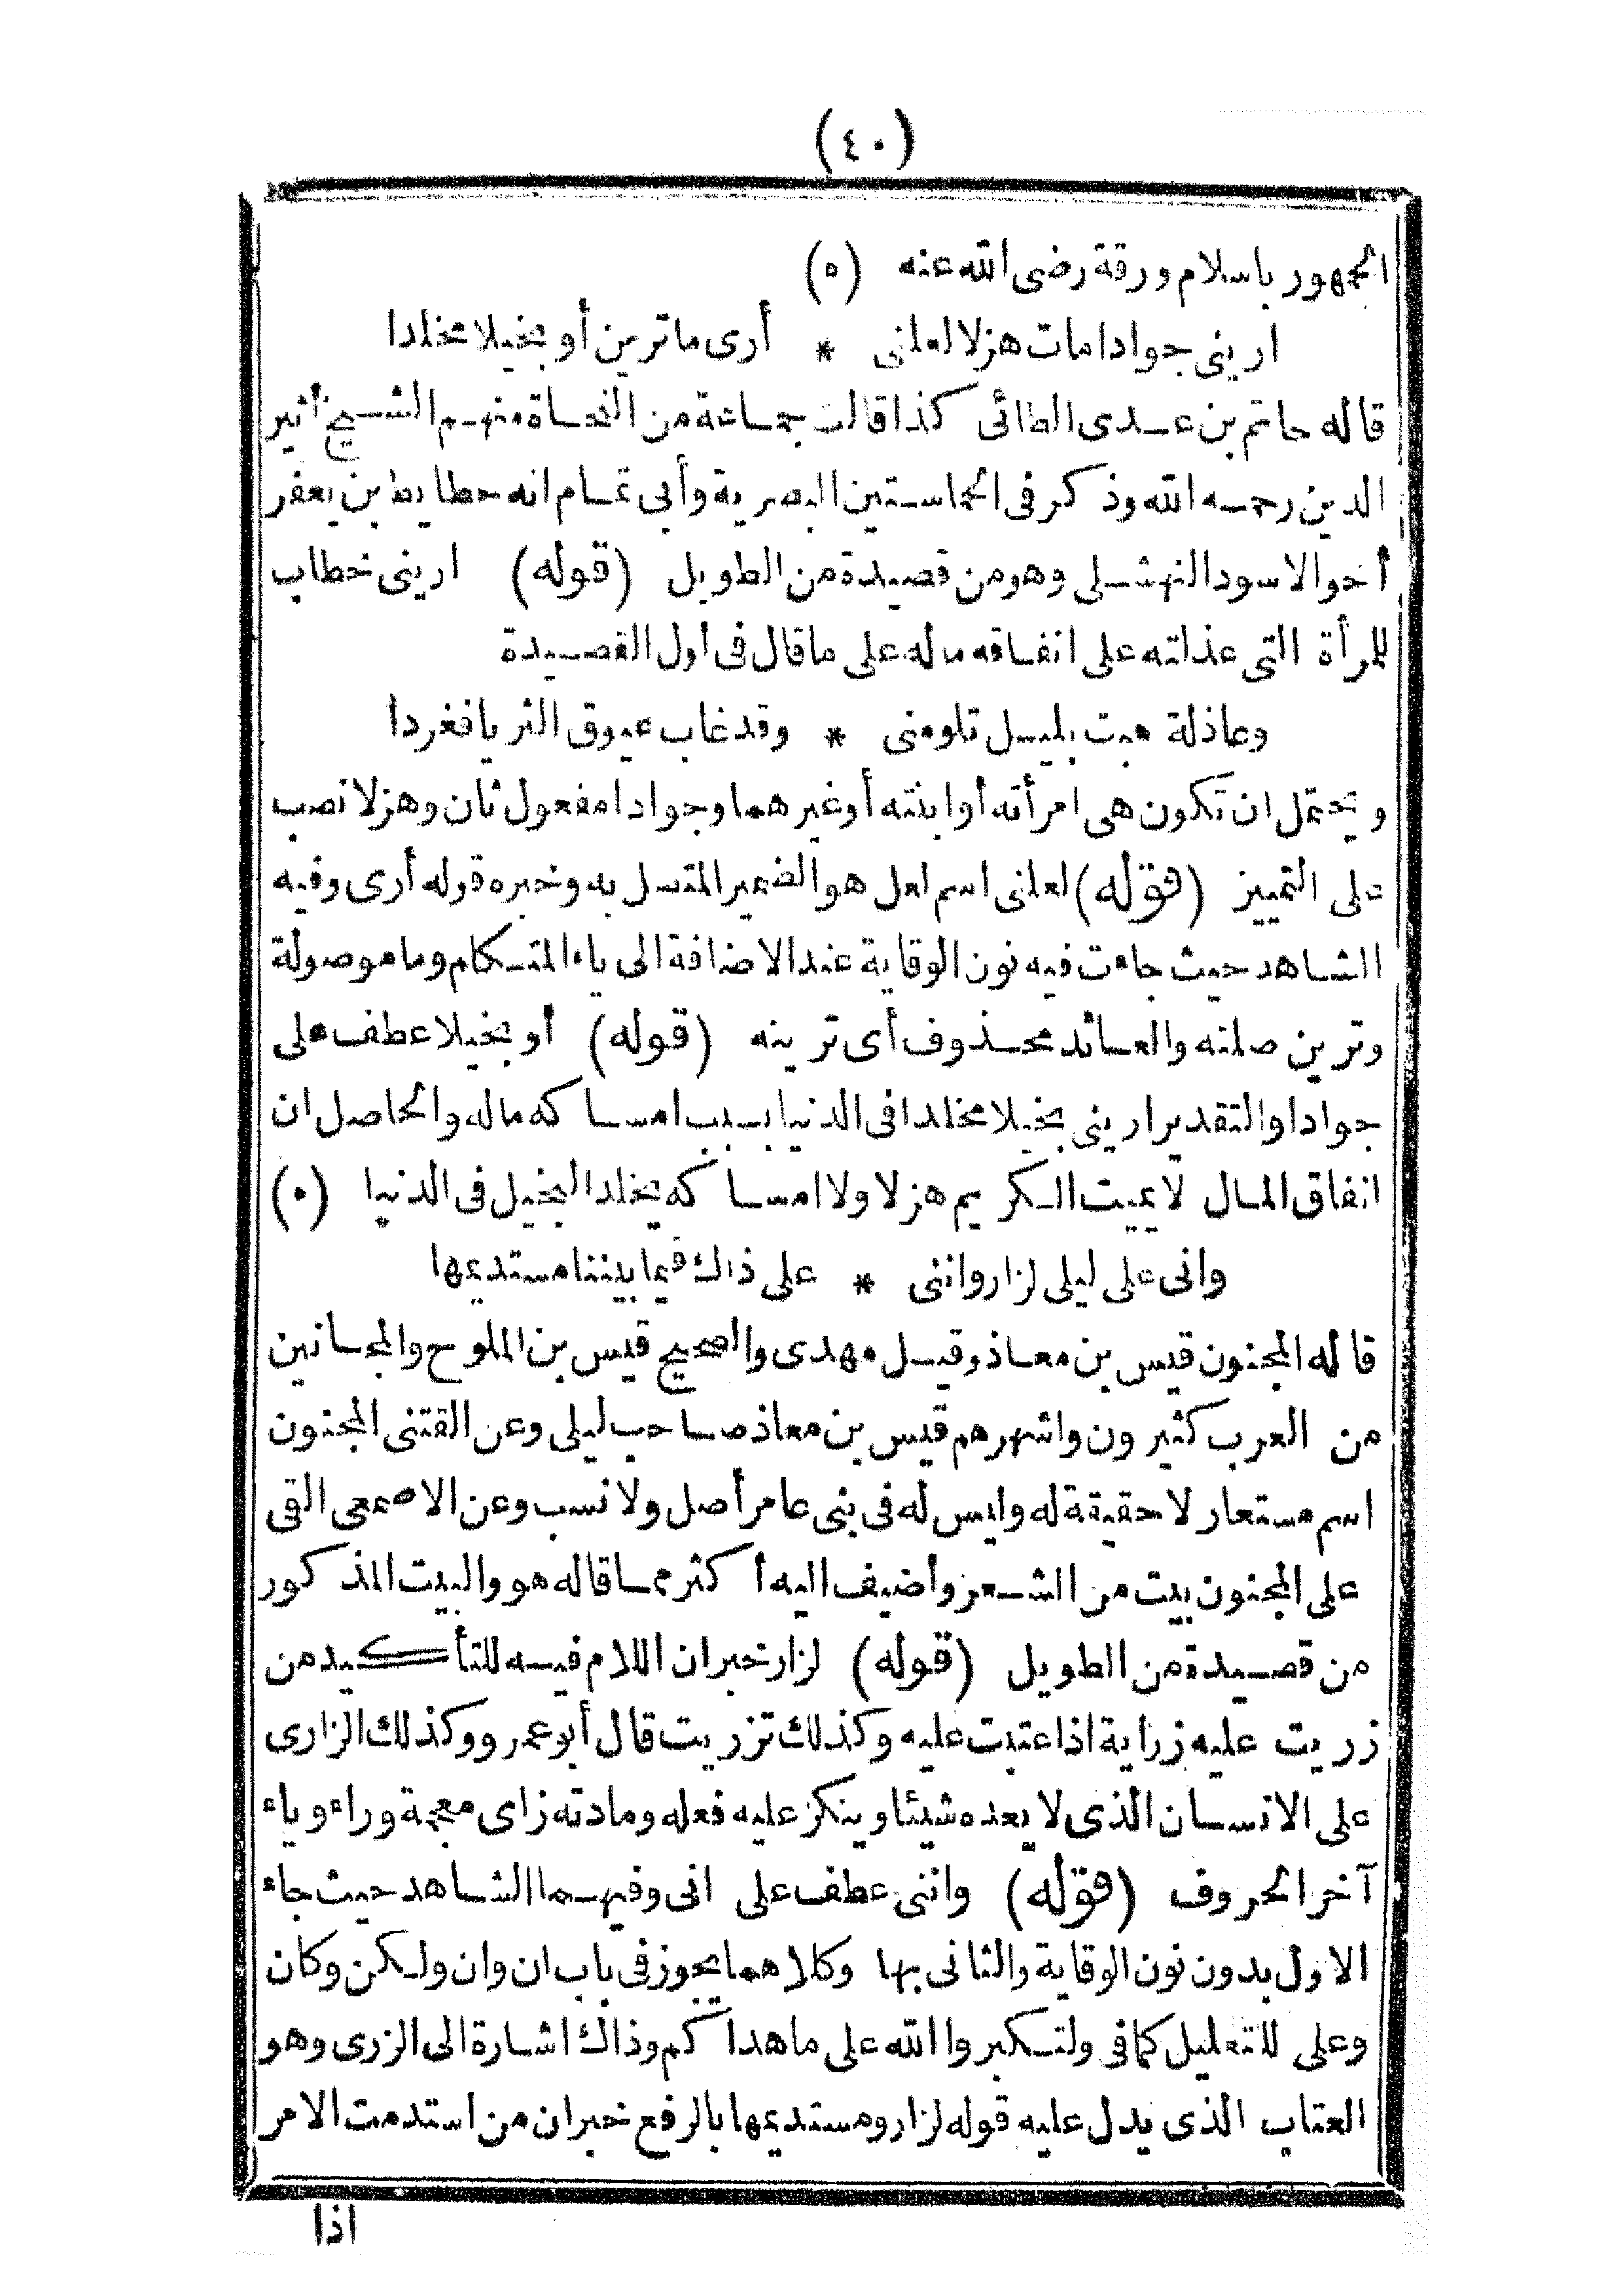 (٤٠)
الجمهور باسلام ورقة رضى الله عنه (ه)
ارينى جوادا مات هزلا لعلنى * أرى ما ترين أو بخيلا مخلدا
قاله حاتم بن عدى الطائى كذا قالت جماعة من النحاة منهم الشيخ أثير
الدين رحمه الله وذكر فى الحماستين البصرية وأبى تمام انه حطايط بن يعفر
أخو الاسود النهشلى وهو من قصيدة من الطويل (قوله) ارينى خطاب
للمرأة التى عذلته على انفاقه ماله على ما قال فى أول القصيدة
وعاذلة هبت بليل تلومنى * وقد غاب عيوق الثريا فغردا
ويحتمل ان تكون هى امرأته أو ابنته أو غيرهما وجوادا مفعول ثان وهزلا نصب
على التمييز (قوله) لعلنى اسم لعل هو الضمير المتصل به وخبره قوله أرى وفيه
الشاهد حيث جاءت فيه نون الوقاية عند الاضافة الى ياء المتكلم وما موصولة
وترين صلته والعائد محذوف أى ترينه (قوله) أو بخيلا عطف على
جوادا والتقدير ارينى بخيلا مخلدا فى الدنيا بسبب امساكه ماله والحاصل ان
انفاق المال لا يميت الكريم هزلا ولا امساكه يخلد البخيل فى الدنيا (ه)
وانى على ليلى لزار واننى * على ذاك فيما بيننا مستديمها
قاله المجنون قيس بن معاذ وقيل مهدى والصحيح قيس بن الملوح والمجانين
من العرب كثيرون واشهرهم قيس بن معاذ صاحب ليلى وعن القتنى المجنون
اسم مستعار لا حقيقة له وليس له فى بنى عامر أصل ولا نسب وعن الاصمعى القى
على المجنون بيت من الشعر وأضيف اليه أكثر مما قاله هو والبيت المذكور
من قصيدة من الطويل (قوله) لزار خبر ان اللام فيه للتأكيد من
زريت عليه زراية اذا عتبت عليه وكذلك تزريت قال أبو عمرو وكذلك الزارى
على الانسان الذى لا يعده شيئا وينكر عليه فعله ومادته زاى معجمة وراء وياء
آخر الحروف (قوله) واننى عطف على انى وفيهما الشاهد حيث جاء
الاول بدون نون الوقاية والثانى بها وكلاهما يجوز فى باب ان وان ولكن وكان
وعلى للتعليل كما فى ولتكبروا الله على ما هداكم وذاك اشارة الى الزرى وهو
العتاب الذى يدل عليه قوله لزار ومستديمها بالرفع خبر ان من استدمت الامر
اذا